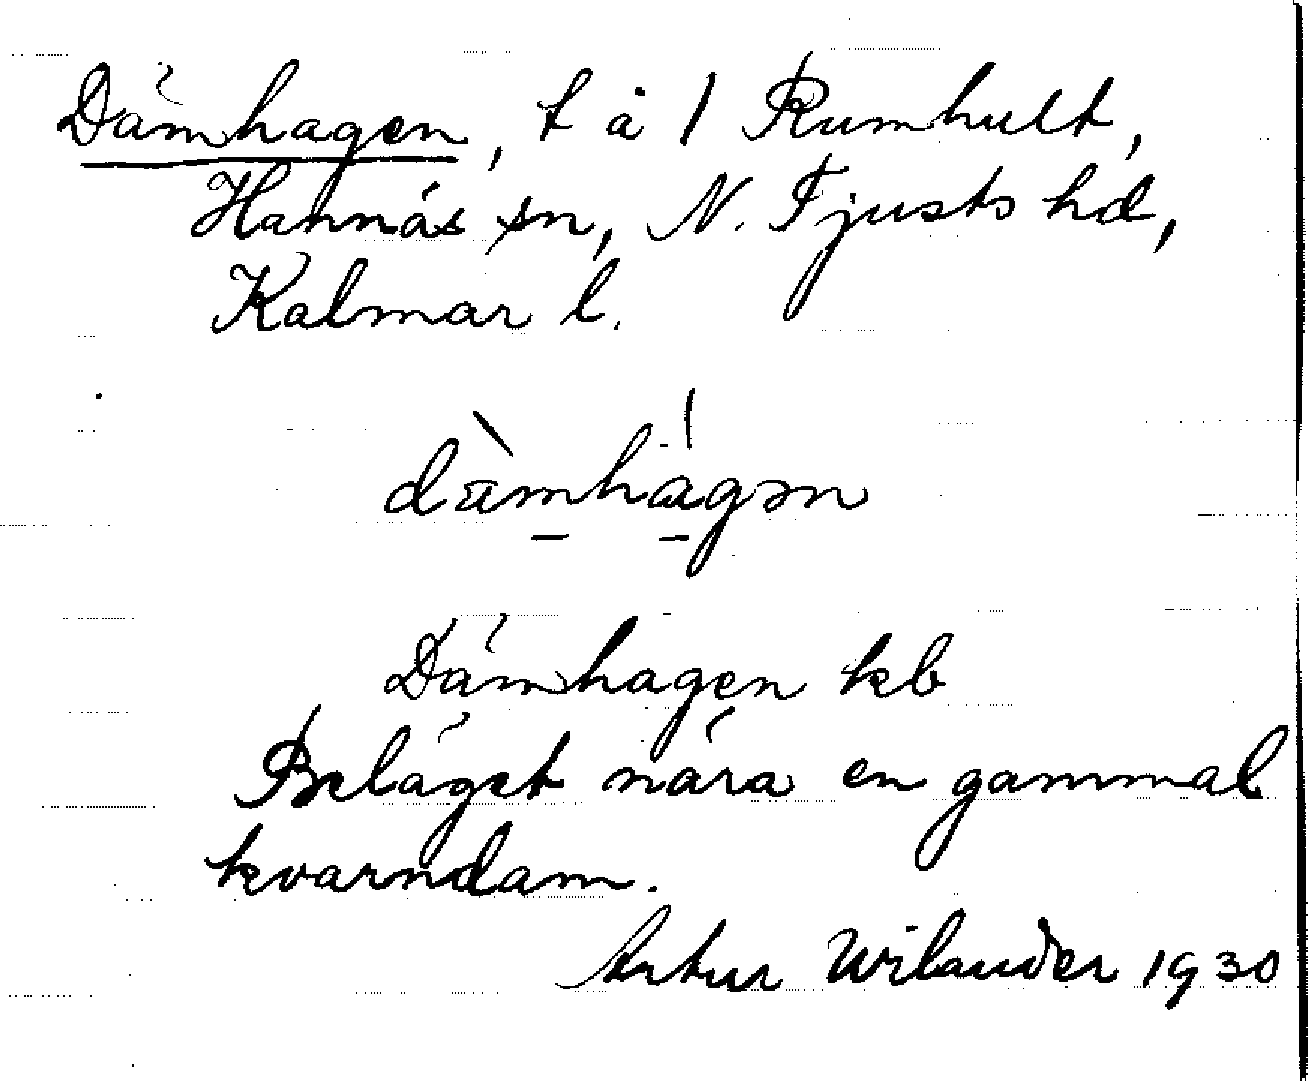 Dämhagen, t å 1 Rumhult,
Hannäs sn, N. Tjusts hd,
Kalmar l.
dàmhágən
Dämhagen kb
Beläget nära en gammal
kvarndam.
Artur Wilander 1930